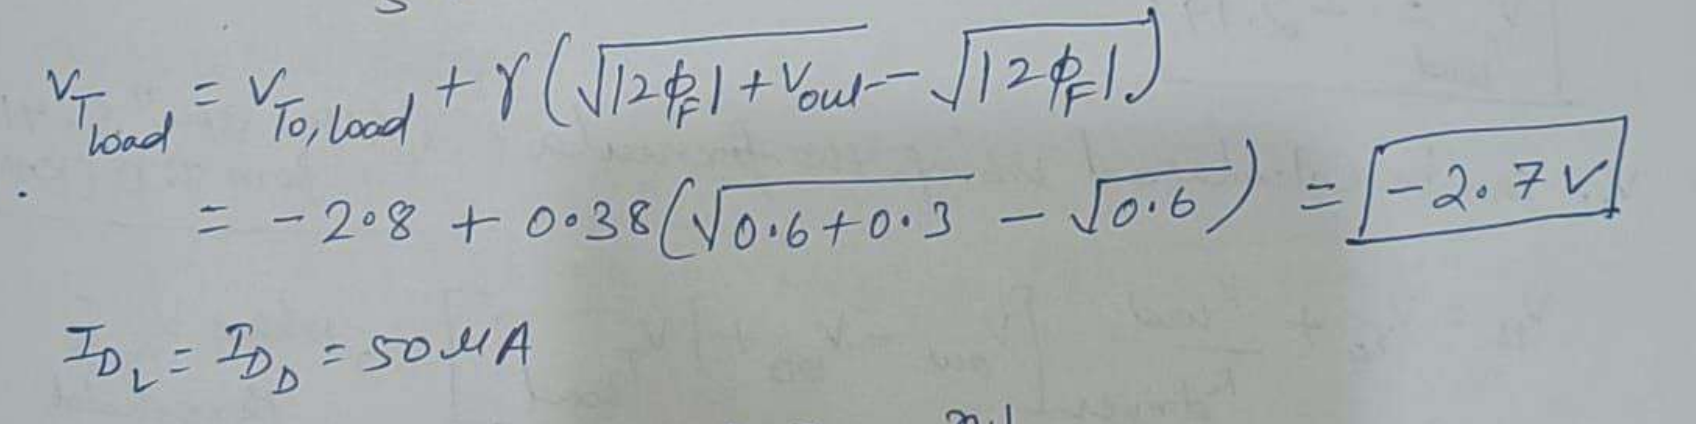 V_T load = V_To,load + γ(√|2ϕ_F|+V_out - √|2ϕ_F|)
= -2.8 + 0.38(√0.6+0.3 - √0.6) = -2.7 V
I_D_L = I_D_D = 50 μA